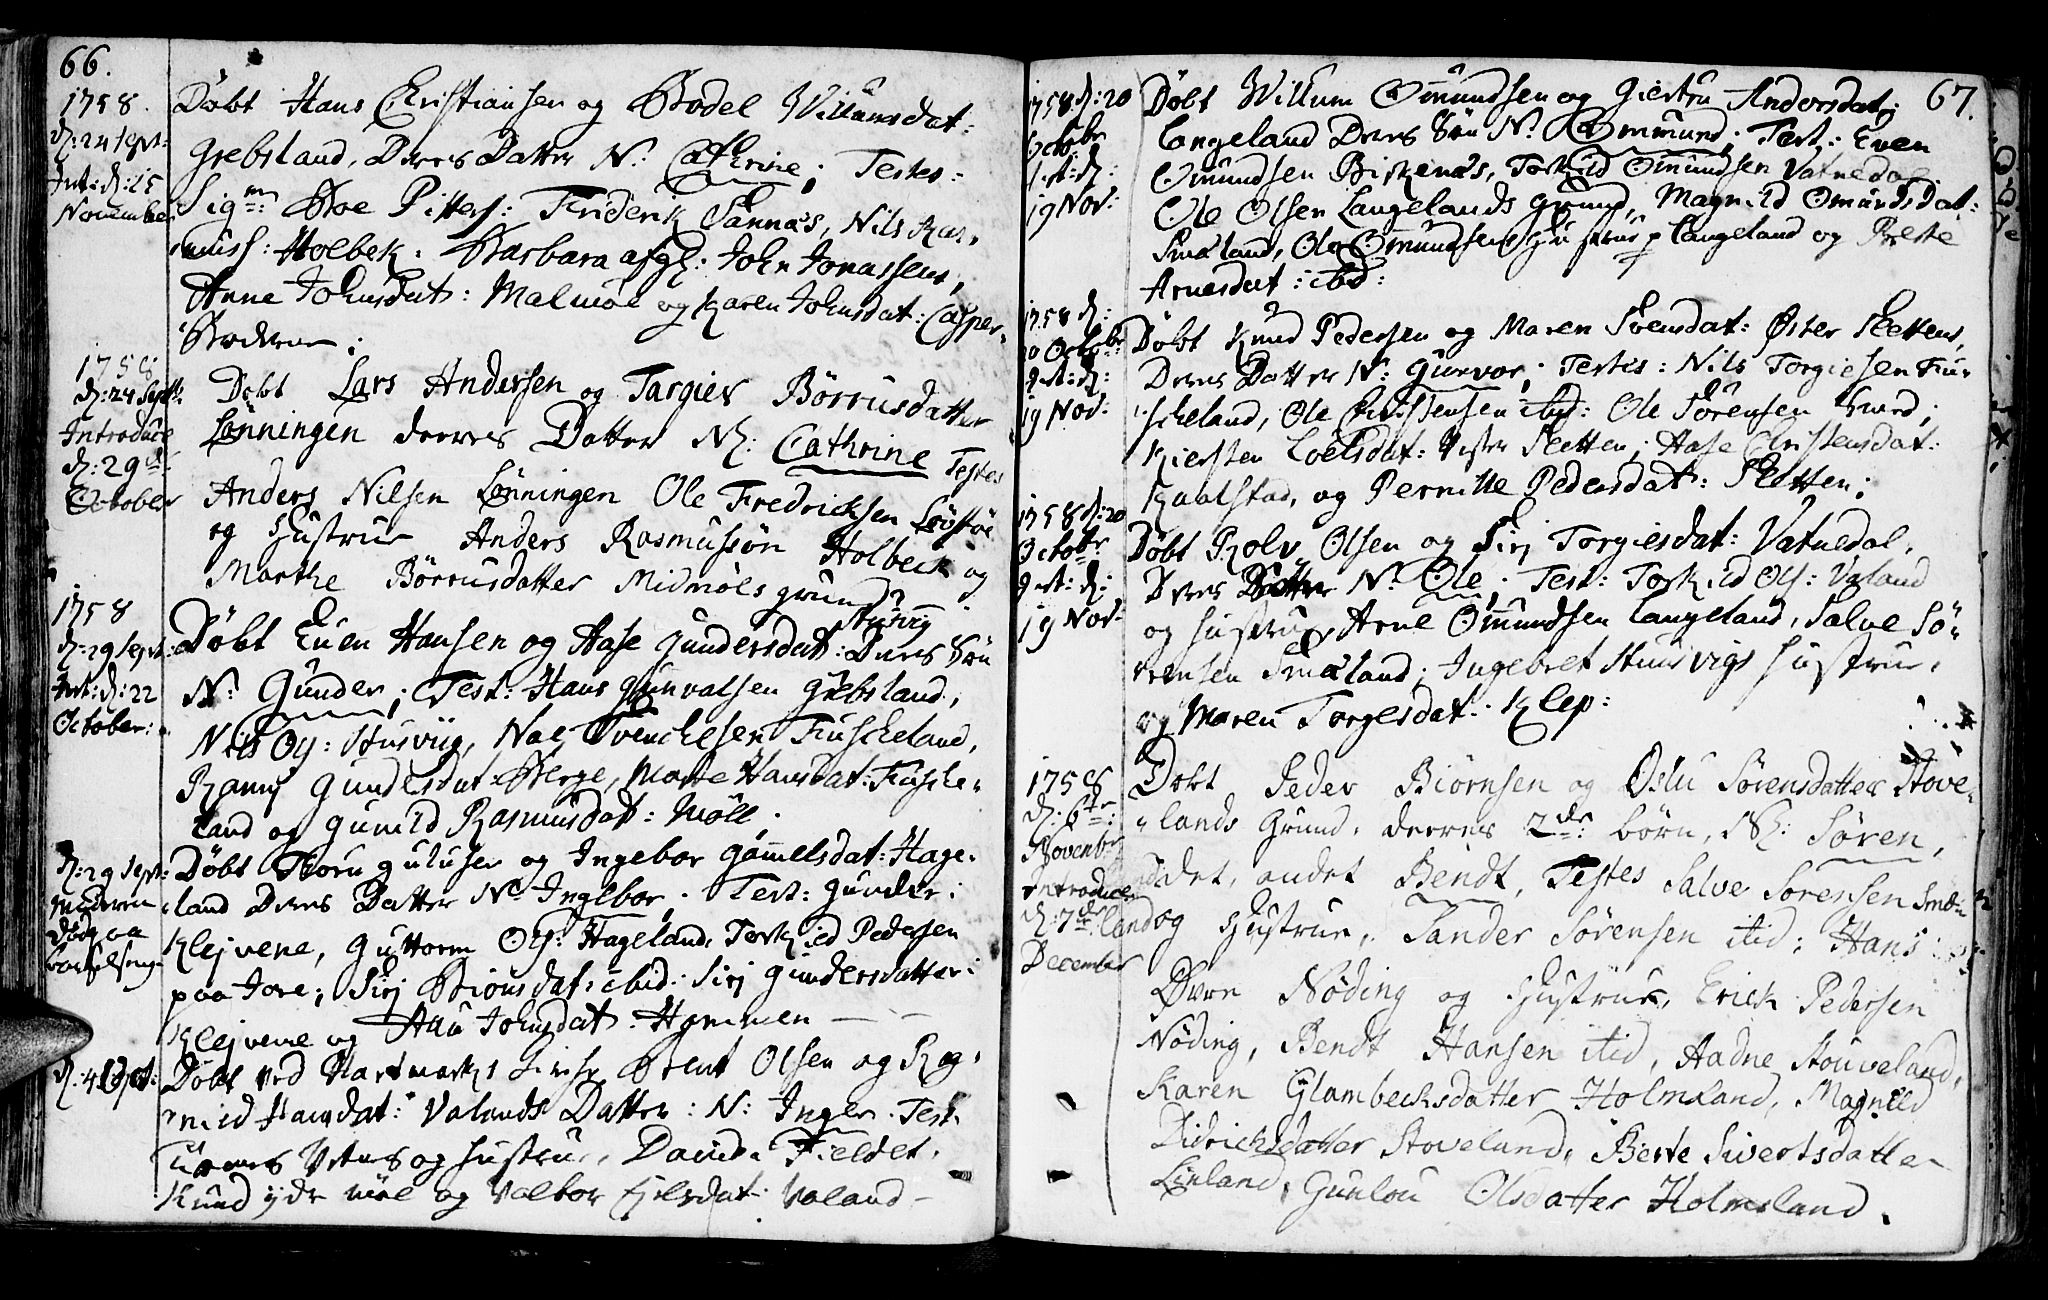 66.
1758.
d: 24 Sept:
Int: d: 15
November
Döbt Hans Christiansen og Bodel Willumsdat:
Grebsland, Deres Datter N: Cathrine; Testes:
Sigm: Boe Pitters: Friderik Sannæs, Nils Ras-
muss: Holbek. Barbara afgl: John Jonassens,
Anne Johnsdat: Malmöe og Karen Johnsdat: Casper
1758
d: 24 Septb:
Introduce
d: 29de
October
Döbt Lars Andersen og Targier Börrusdatter
Lønningen derres Datter N: Cathrine Testes
Anders Nilsen Lønningen Ole Fredricksen
og Hustrue Anders Rasmussön Holbeck og
Marthe Börrusdatter Midmöls grund
1758
d: 29 Sept:
Int: d: 22
October:
Döbt Even Hansen og Aase Gundersdat: Deres Sön
N: Gunder; Test: Hans Gunvalsen Grebsland,
Nils Ols: Husviig, Noe Tvenchesen Fuscheland,
Ranni Gundersdat Berge, Marte Hansdat: Fusche-
land og Gunild Rasmusdat: Möll.
d: 29 Sept:
Döbt Tron Gulusen og Ingebor Gamelsdat: Hage-
land Deres Datter N: Ingebor. Test: Gunder
Klejvene, Guttorm Ols: Hageland, Torkild Pedersen
paa Fore; Siri Biönsdat: ibid: Siri Gundersdatter:
Klejvene og Aau Johnsdat: Hommen
d: 4 Sept:
Döbt ved Hartmark Brent Olsen og Rag-
nild Hansdat: Valands Datter: N: Inger. Test:
og Hustrue, David Fieldet,
Knud ydr möl og Valbor Ejelsdat: Valand
67.
1758 d: 20
Octobr
Int: d:
19 Nov:
Döbt Willum Omundsen og Giertru Andersdat:
Langeland Deres Sön N: Ommund; Test: Even
Omundsen Birkenæs, Torkild Omundsen Vatnedal
Ole Olsen Langelands Grund, Magnild Omundsdat:
Smaland, Ole Omundsens Hustrue p Langeland og Berte
Arnesdat: ibid:
1758 d:
20 Octobr
Int: d:
19 Nov:
Döbt Knud Pedersen og Maren Svensdat: Öster Sletten,
Deres Datter N: Gunvor; Testes: Nils Torgiesen Fu-
scheland, Ole Christensen ibid: Ole Sörensen
Kiersten Loelsdat: Vester Sletten; Aase Christensdat:
Raalstad, og Pernille Pedersdat: Sletten;
1758 d: 20
Octobr
Int: d:
19 Nov:
Döbt Rolv Olsen og Siri Torgiesdat: Vatnedal,
Deres N: Ole; Test: Torkild Ols: Valand
og Hustrue, Arne Omundsen Langeland, Salve Sö-
rensen Smaland; Ingebret Huusvigs Hustrue,
og Maren Torgesdat: Klep:
1758
d: 6te:
Novembr
Introducer
d: 7de
December
Döbt Peder Biörnsen og Oslu Sörensdatter Stove-
lands Grund, derres 2de: börn, N: Sören,
det andet Bendt, Testes Salve Sörensen Smæ-
land og Hustrue, Sander Sörensen itid: Hans
Nöding og Hustrue, Erick Pedersen
Nöding, Bendt Hansen itid, Aadne Stouveland,
Karen Glambecksdatter Holmsland, Magnild
Didricksdatter Stoveland, Berte Sivertsdatter
Linland, Gunlou Olsdatter Holmsland.